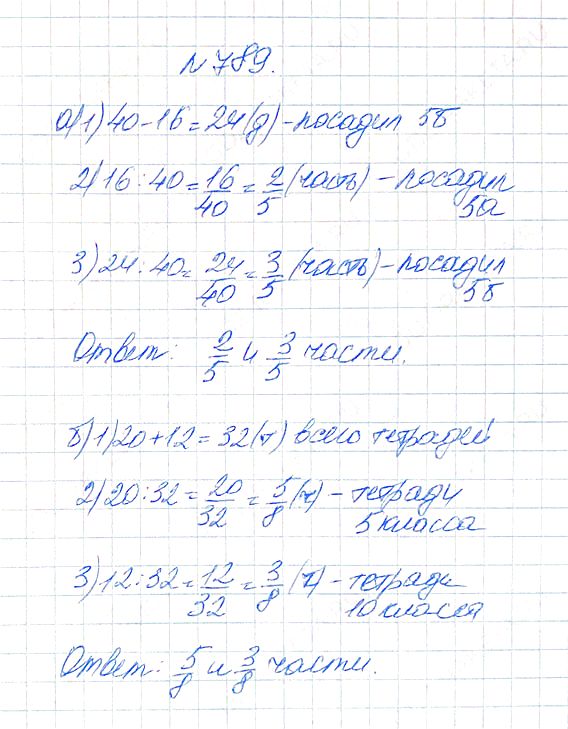 №789.
а) 1) 40-16=24(д)-посадил 5б
2) 16:40=16/40=2/5(часть)-посадил
5а
3) 24:40=24/40=3/5(часть)-посадил
5б
Ответ: 2/5 и 3/5 части.
б) 1) 20+12=32(т) всего тетрадей
2) 20:32=20/32=5/8(т)-тетради
5 класса
3) 12:32=12/32=3/8(т)-тетради
10 класса
Ответ: 5/8 и 3/8 части.